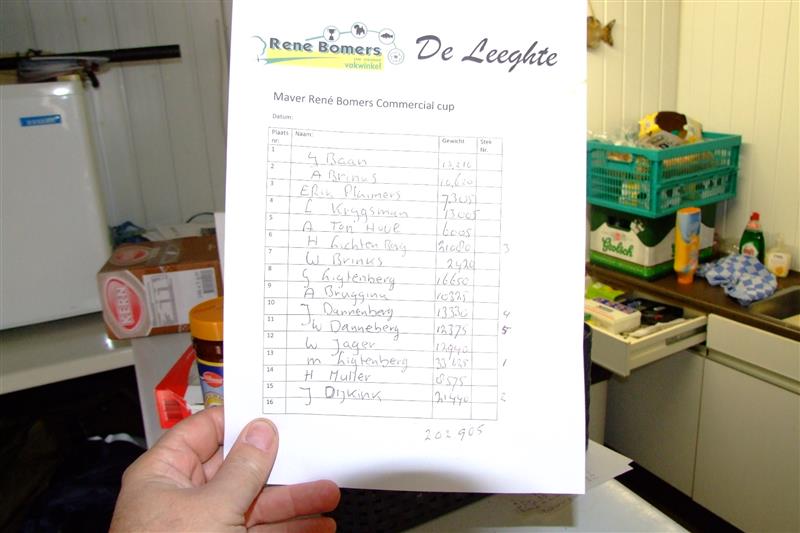 Rene Bomers
vakwinkel
De Leeghte
Maver René Bomers Commercial cup
Datum:
Plaats nr: Naam: Gewicht Stek Nr.
1 G Baan 13,210
2 A Brinks
3 Erik Plaimers 7305
4 L Krygsman 13005
5 A Ten Hove 6005
6 H Lichten Berg 21080 3
7 W Brinks 2420
8 G Ligtenberg 16650
9 A Bruggink 10325
10 J Dannenberg 13330 4
11 W Danneberg 12375 5
12 W Jager 12940
13 M Ligtenberg 1
14 H Muller 8575
15 J Dijkink 21440 2
16
202905
KERN
Grolsch